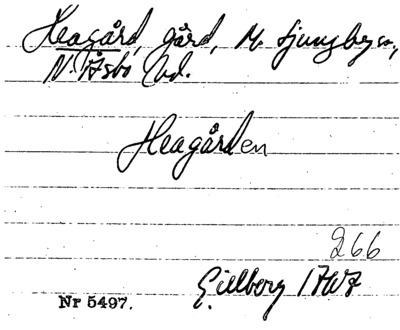 Heagård, gård, M. Ljungby sn,
N. Åsbo hd.
Heagården
266
Gillberg 1767
Nr 5497.